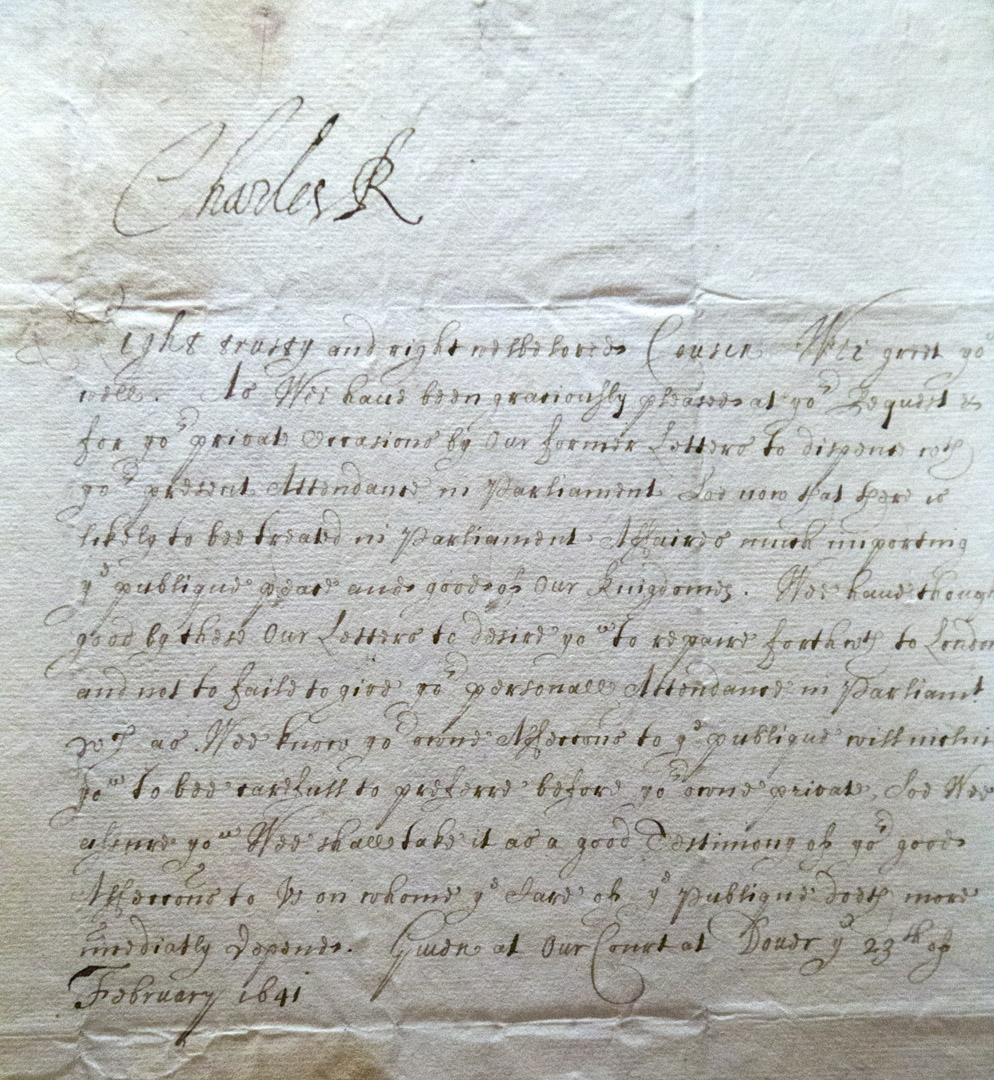 Charles R
Right trusty and right welbeloved Cousin Wee greet yow
well. As Wee have been graciously pleased at yor Request &
for yor private Occasions by Our former Letters to dispence wth
yor present Attendance in Parliament Soe now that there is
likely to bee treated in Parliament Affaires much importing
ye publique peace and good of Our Kingdomes. Wee have though
good by these Our Letters to desire yow to repaire forthwth to London
and not to faile to give yor personall Attendance in Parliamt
wch as Wee know yor owne Affeccons to ye publique will inclin
yow to bee carefull to preferre before yor owne private, Soe Wee
assure yow Wee shall take it as a good Testimony of yor good
Affeccons to Us on whome ye Care of ye Publique doeth more
imediatly depend. Given at Our Court at Dover ye 23th of
February 1641